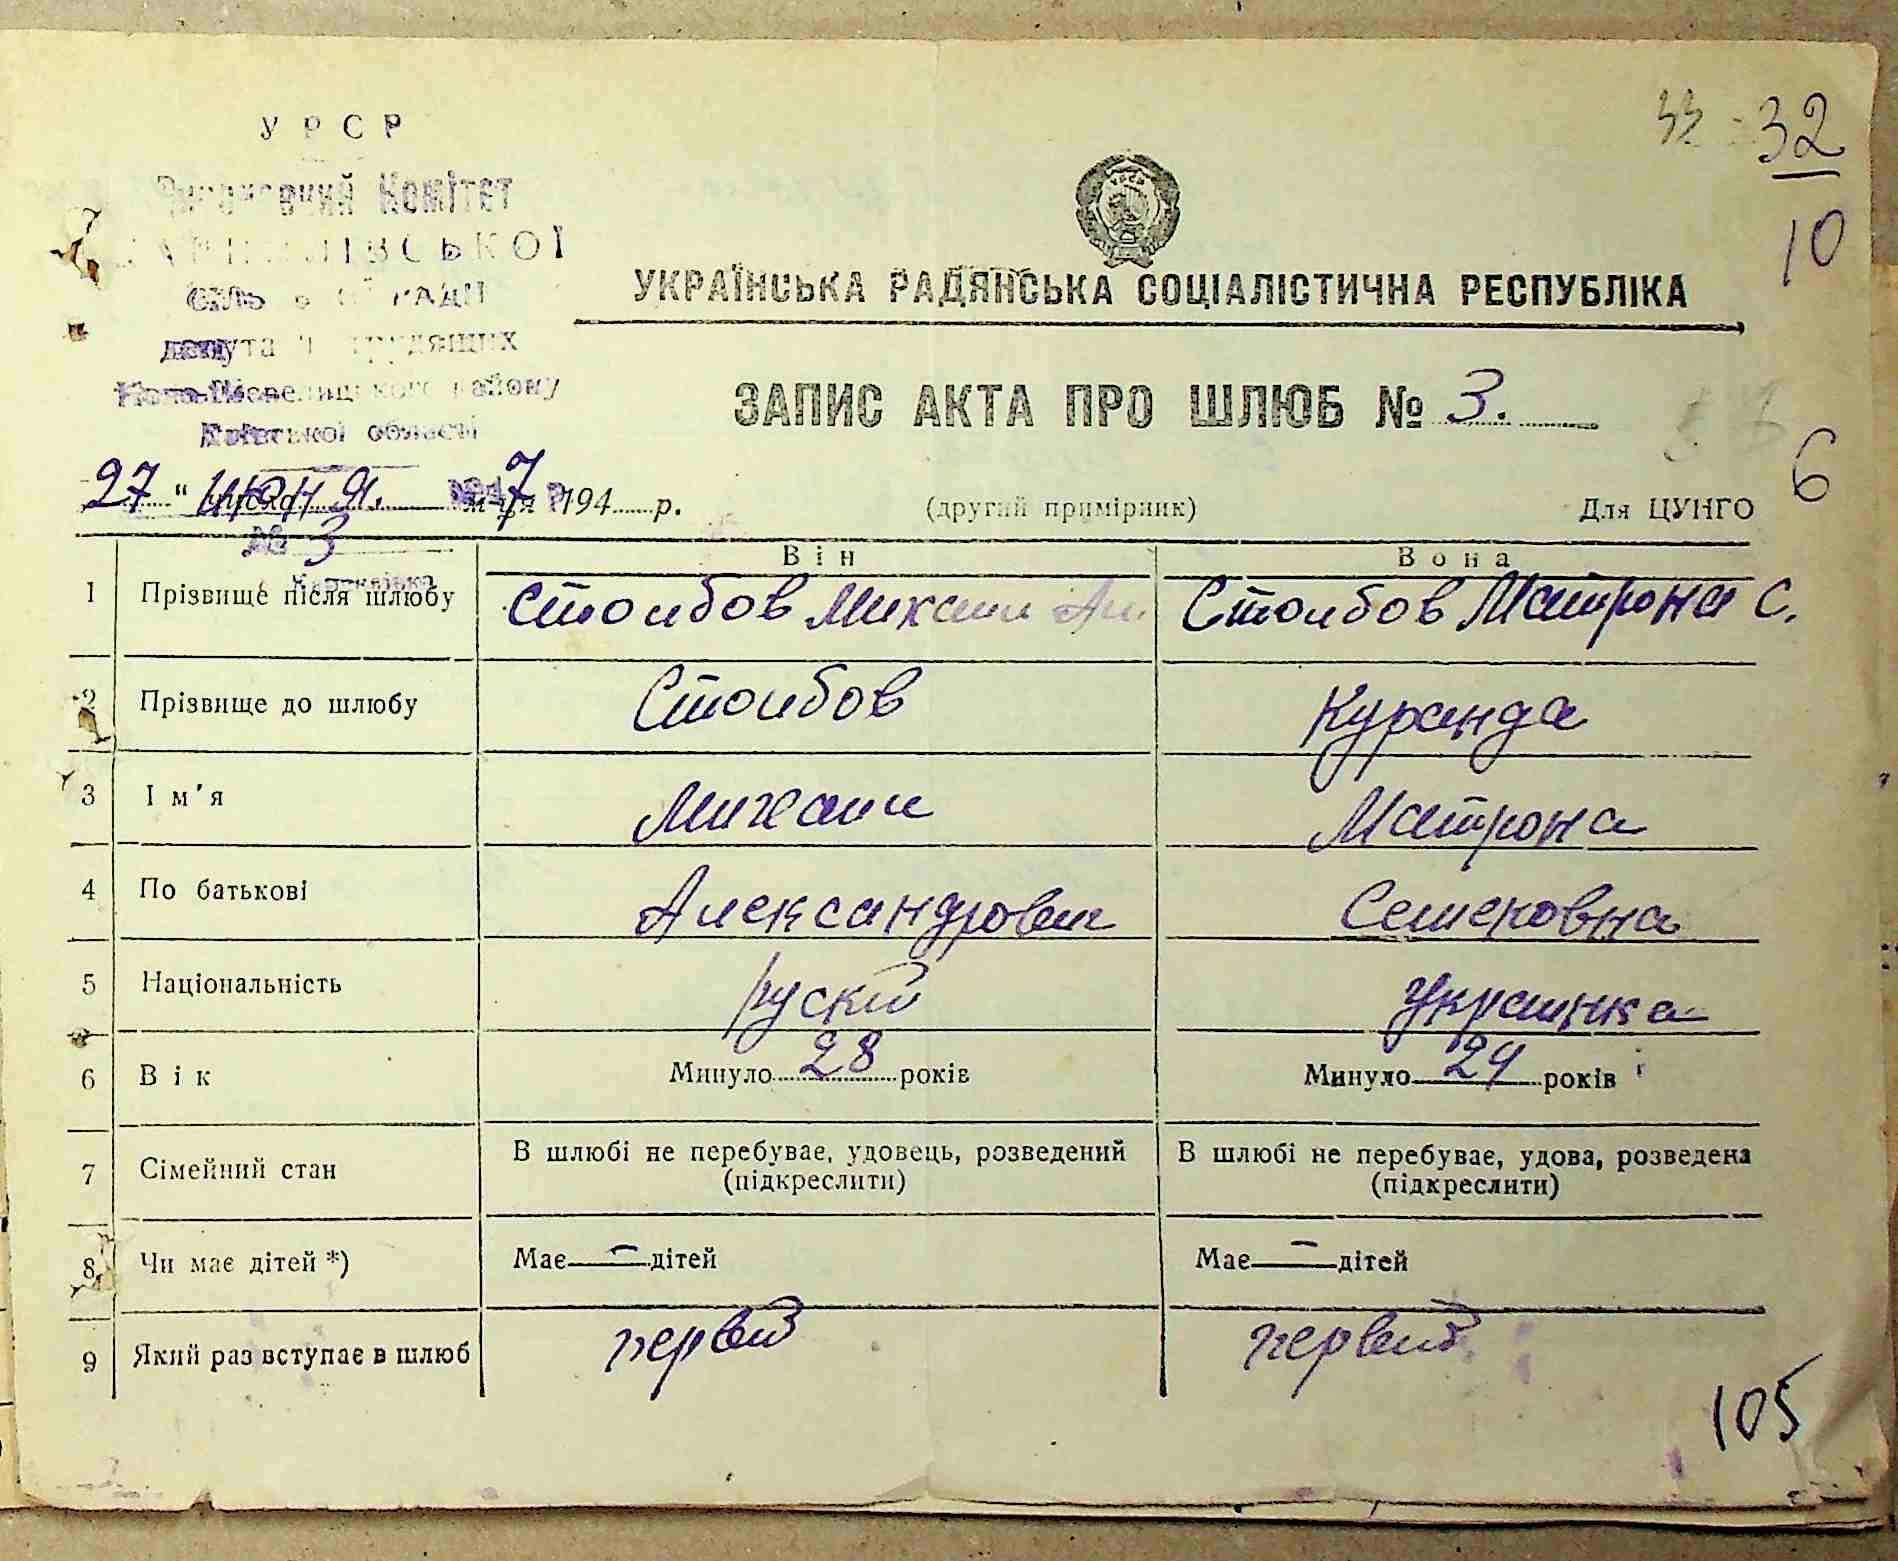 УРСР
Виконавчий Комітет
СІЛЬ РАДИ
депутатів трудящих
району
Київської області
33 32
10
УКРАЇНСЬКА РАДЯНСЬКА СОЦІАЛІСТИЧНА РЕСПУБЛІКА
ЗАПИС АКТА ПРО ШЛЮБ № 3.
6
27 " июня. м-ця 1947 р.
(другий примірник)
Для ЦУНГО
№ 3
Він
Вона
1 Прізвище після шлюбу Столбов Михаил Ал. Столбов Матрона С.
2 Прізвище до шлюбу Столбов Куранда
3 Ім'я Михаил Матрона
4 По батькові Александрович Семеновна
5 Національність руский украинка
6 Вік Минуло 28 років Минуло 24 років
7 Сімейний стан В шлюбі не перебуває, удовець, розведений (підкреслити) В шлюбі не перебуває, удова, розведена (підкреслити)
8 Чи має дітей *) Має — дітей Має — дітей
9 Який раз вступає в шлюб первий первий
105